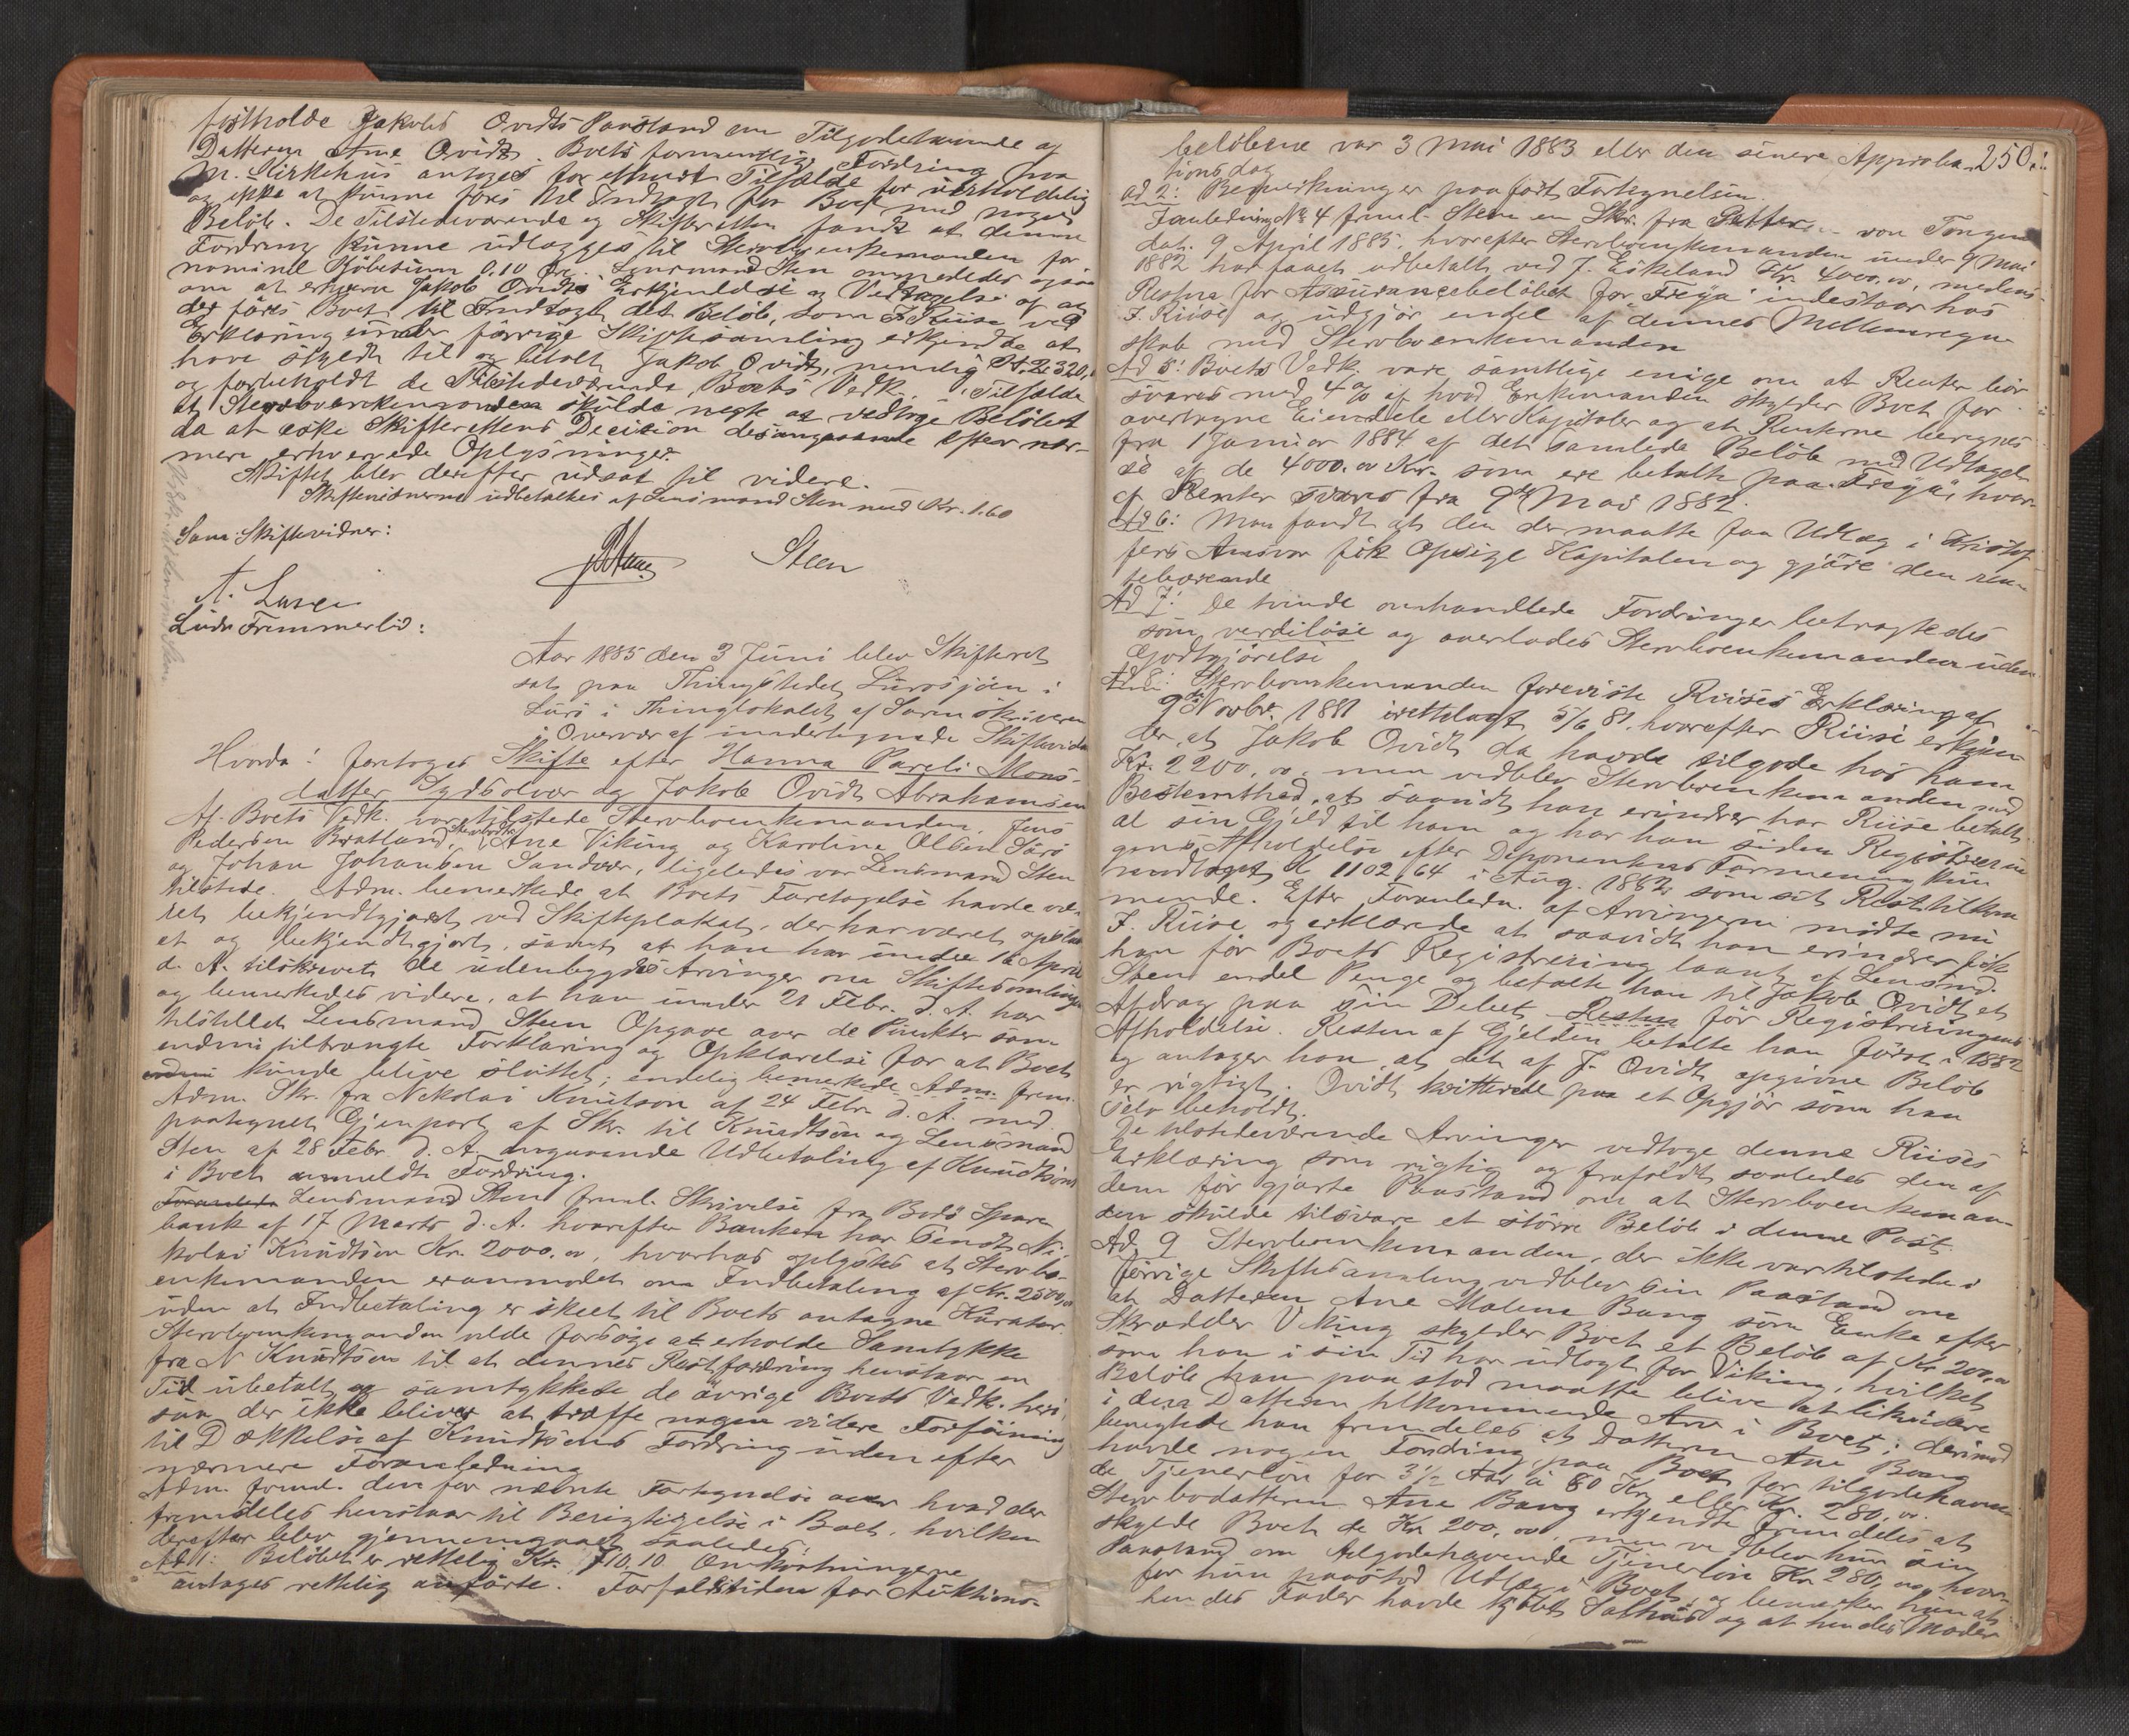 fastholde Jakobs Ovidts Paastand om Tilgodehavende og
Datteren Ane Ovidts. Boets formentlige Fordring paa
M. Kirkehus antoges for ethvert Tilfælde for uerholdelig
og ikke at kunne føres til Indtægt for Boet med noget
Beløb. De Tilstedeværende og Skifteretten fandt at denne
Fordring kunne udlægges til Stervboenkemanden for
nominel Kjøbesum 0,10 Øre. Lensmand Sten anmodedes ogsaa
om at erhverve Jakob Ovidts Erkjendelse og Vedtagelse af at
der føres Boet til Indtægt det Beløb, som J. Riise ved
Erklæring under forrige Skiftesamling erkjendte at
have skyldt til og betalt Jakob Ovidt, nemlig Kr. 320,
og forbeholdt de Tilstedeværende Boets Vedk. i Tilfælde
at Stervboenkemanden skulde negte at vedtage Beløbet
da at æske Skifterettens Decision desangaaende efter nær-
mere erhvervede Oplysninger.
Skiftet blev derefter udsat til videre.
Skiftevidnerne udbetaltes af Lensmand Sten med Kr. 1.60
Som Skiftevidner:
Steen
A. Larsen
Ludv. Fremmerlid:
Aar 1885 den 3 Juni blev Skifteret
sat paa Thingstedet Lurøsjøen i
Lurø i Thinglokalet af Sorenskriveren
i Overvær af undertegnede Skiftevidn
Hvorda: foretoges Skifte efter Hanna Pareli Mons-
datter Sydsolvær og Jakob Ovidt Abrahamsen
Af Boets Vedk. var tilstede Stervboenkemanden Jens
Pedersen Bratland, Stervbodtr. Ane Viking og Karoline Olsen Lurø
og Johan Johansen Sandvær, ligeledes var Lensmand Sten
tilstede. Adm. bemærkede at Boets Foretagelse havde væ-
ret bekjendtgjort ved Skifteplakat, der har været opslaa-
et og bekjendtgjort, samt at han har under 16 April
d. A. tilskrevet de udenbygds Arvinger om Skiftesamlingen
og bemerkedes videre, at han under 21 Febr. d. A. har
tilstillet Lensmand Steen Opgave over de Punkter som
endnu tiltrængte Forklaring og Opklarelse for at Boet
kunde blive sluttet; endelig bemerkede Adm. frem.
Adm. Skr. fra Nikolai Knutson af 24 Febr. d. A. med
paategnet Gjenpart af Skr. til Knudtson og Lensmand
Sten af 28 Febr. d. A. angaaende Udbetaling af Knudtsons
i Boet anmeldte Fordring.
Lensmand Sten freml. Skrivelse fra Bodø Spare-
bank af 17 Marts d. A. hvorefter Banken har sendt Ni-
kolai Knudtson Kr. 2000,00, hvorhos oplystes at Stervbo-
enkemanden er anmodet om Indbetaling af Kr. 2500,00
uden at Indbetaling er skeet til Boets antagne Kurator.
Stervboenkemanden vilde forsøge at erholde Samtykke
fra N Knudtson til at dennes Restfordring henstaar en
Tid ubetalt og samtykkede de øvrige Boets Vedk. heri,
saa der ikke bliver at træffe nogen videre Forføining
til Dækkelse af Knudtsons Fordring uden efter
nærmere Foranledning
Adm. freml. den før nævnte Fortegnelse over hvad der
fremdeles henstaar til Berigtigelse i Boet, hvilken
derefter blev gjennemgaaet saaledes:
Ad 1: Beløbet er rettelig Kr. 710,10 Omkostningerne
antages rettelig anførte. Forfaldstiden for Auktions-
beløbene var 3 Mai 1883 eller den senere Approba- 250.
tions dag
ad 2: Bemerkninger paaført Fortegnelsen.
I anledning No 4 freml. Sten en Skr. fra Petter von Tangen
dat. 9 April 1885, hvorefter Stervboenkemanden under 9 Mai
1882 har faaet udbetalt ved J. Eskeland Kr. 4000,00, medens
Resten for Assurancebeløbet for "Freya" indestaar hos
J. Riise og udgjør endel af dennes Mellemregn-
skab med Stervboenkemanden
Ad 5: Boets Vedk. vare samtlige enige om at Renter bør
svares med 4 % af hvad Enkemanden skylder Boet for
overtagne Eiendele eller Kapitaler og at Renterne beregnes
fra 1 Januar 1884 af det samlede Beløb med Undtagel-
se af de 4000.00 Kr. som ere betalte paa "Freya", hvor-
af Renter svares fra 9de Mai 1882.
Ad 6: Man fandt at den der maatte faa Udlæg i Kristof-
fers Ansvar fik Opsige Kapitalen og gjøre den ren-
tebærende
Ad 7: De tvende omhandlede Fordringer betragtedes
som værdiløse og overlodes Stervboenkemanden uden
Godtgjørelse
Ad 8: Stervboenkemanden foreviste Riises Erklæring af
9de Novbr. 1881 irettelagt 5/6 81. hvorefter Riise erkjen-
der, at Jakob Ovidt da havde tilgode hos ham
Kr. 2200,00, men vedblev Stervboenkemanden med
Bestemthed, at saavidt han erindrer har Riise betalt
al sin Gjeld til ham og har han siden Registrerin-
gens Afholdelse efter Deponentens Formening kun
modtaget Kr 1102,64 i Aug. 1882 som sit Resttilkom-
mende. Efter Foranledn. af Arvingerne mødte nu
J. Riise og erklærede at saavidt han erindrer fik
han før Boets Registrering laant af Lensmd.
Steen endel Penge og betalte han til Jakob Ovidt et
Afdrag paa sin Debet. Resten før Registreringens
Afholdelse. Resten af Gjelden betalte han først i 1882
og antager han at det af J. Ovidt opgivne Beløb
er rigtigt. Ovidt kvitterede paa et Opgjør som han
selv beholdt.
De tilstedeværende Arvinger vedtoge denne Riises
Erklæring som rigtig og frafaldt saaledes den af
dem før gjorte Paastand om at Stervboenkeman-
den skulde tilsvare et større Beløb i denne Post.
Ad 9 Stervboenkemanden, der ikke var tilstede i
forrige Skiftesamling vedblev sin Paastand om
at Datteren Ane Malena Bang som Enke efter
Skrædder Viking skylder Boet et Beløb af Kr 200,00
som han i sin Tid har udlagt for Viking, hvilket
Beløb han paastod maatte blive at likvidere
i dens Datteren tilkommende Arv i Boet; derimod
benegtede han fremdeles at Datteren Ane Bang
havde nogen Fordring paa Boet for tilgodehaven-
de Tjenerløn for 3½ Aar à 80 Kr. eller Kr. 280,00.
Stervbodatteren Ane Bang erkjendte fremdeles at
skylde Boet de Kr 200,00, men vedblev hun sin
Paastand om tilgodehavende Tjenerløn Kr 280,00, hvor-
for hun paastod Udlæg i Boet, og bemerker hun at
hendes Fader havde kjøbt Salthus og at hendes Moder